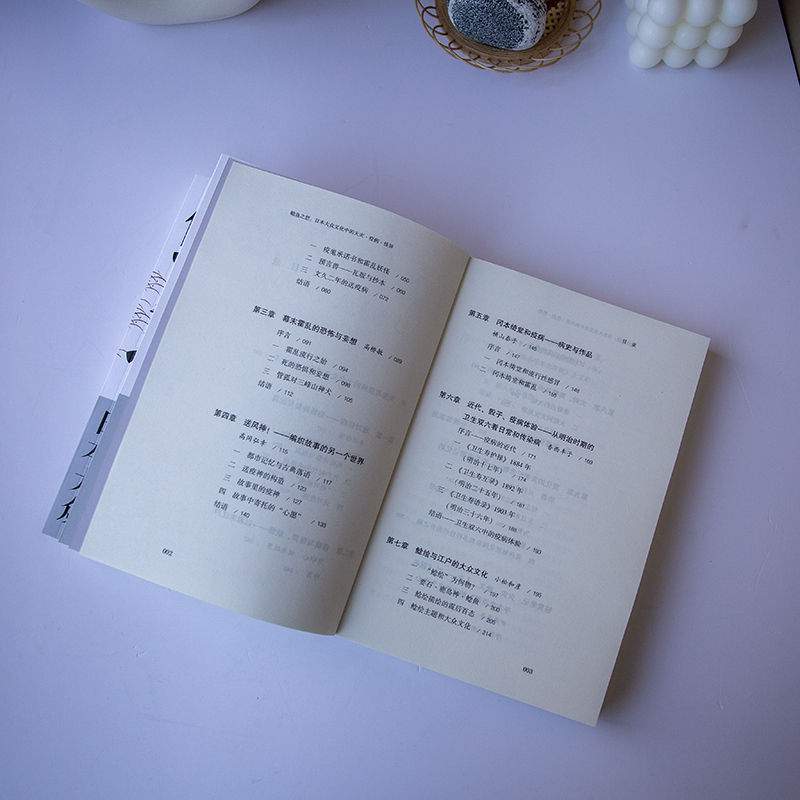 鲶鱼之怒：日本大众文化中的天灾·疫病·怪异
一 疫鬼承诺书和霍乱妖怪 / 050
二 预言兽——瓦版与抄本 / 060
三 文久二年的送疫病 / 072
结语 / 080
第三章 幕末霍乱的恐怖与妄想 高桥敏 / 089
序言 / 091
一 霍乱流行之始 / 094
二 死的恐惧和妄想 / 098
三 管狐对三峰山神犬 / 105
结语 / 112
第四章 送风神！——编织故事的另一个世界
高冈弘幸 / 115
一 都市记忆与古典落语 / 117
二 送疫神的构造 / 123
三 故事里的疫神 / 127
四 故事中寄托的“心愿” / 133
结语 / 140
002
目录
第五章 冈本绮堂和疫病——病史与作品
横山泰子 / 145
序言 / 147
一 冈本绮堂和流行性感冒 / 148
二 冈本绮堂和霍乱 / 158
第六章 近代、骰子、疫病体验——从明治时期的
卫生双六看日常和传染病 香西丰子 / 169
序言——疫病的近代 / 171
一 《卫生寿护禄》1884年
（明治十七年） / 174
二 《卫生寿互录》1892年
（明治二十五年） / 181
三 《卫生寿语录》1903年
（明治三十六年） / 188
结语——卫生双六中的疫病体验 / 193
第七章 鲶绘与江户的大众文化 小松和彦 / 195
一 “鲶绘”为何物？ / 197
二 要石·鹿岛神·鲶鱼 / 200
三 鲶绘描绘的震后百态 / 205
四 鲶绘主题和大众文化 / 214
003